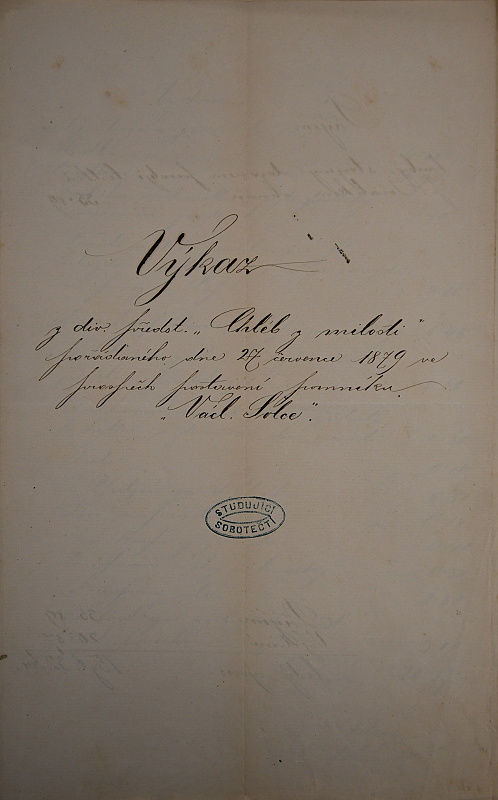 Výkaz
z div. předst. „Chléb z milosti“
pořádaného dne 27 července 1879 ve
prospěch postavení pomníku
„Václ. Šolce“.
STUDUJÍCÍ
SOBOTEČTÍ